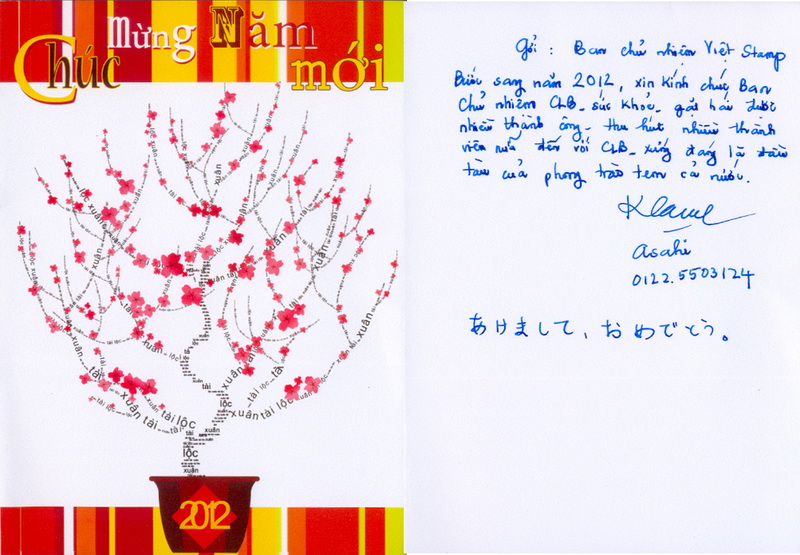 Chúc Mừng Năm mới
lộc xuân
xuân
tài
xuân tài lộc
xuân tài lộc
lộc
xuân
2012
Gởi : Ban chủ nhiệm Việt Stamp
Bước sang năm 2012, xin kính chúc Ban
Chủ nhiệm CLB sức khỏe, gặt hái được
nhiều thành công, thu hút nhiều thành
viên nữa đến với CLB, xứng đáng là đầu
tàu của phong trào tem cả nước.
asahi
0122.5503124
あけまして、おめでとう。